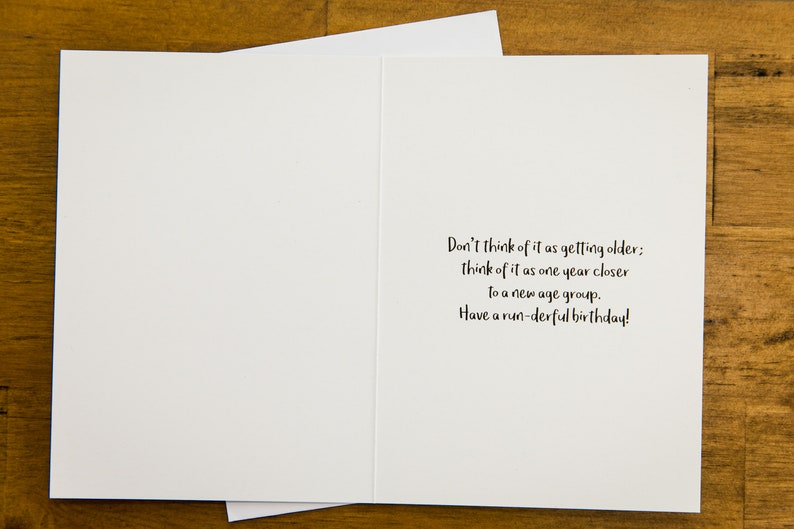 Don't think of it as getting older;
think of it as one year closer
to a new age group.
Have a run-derful birthday!